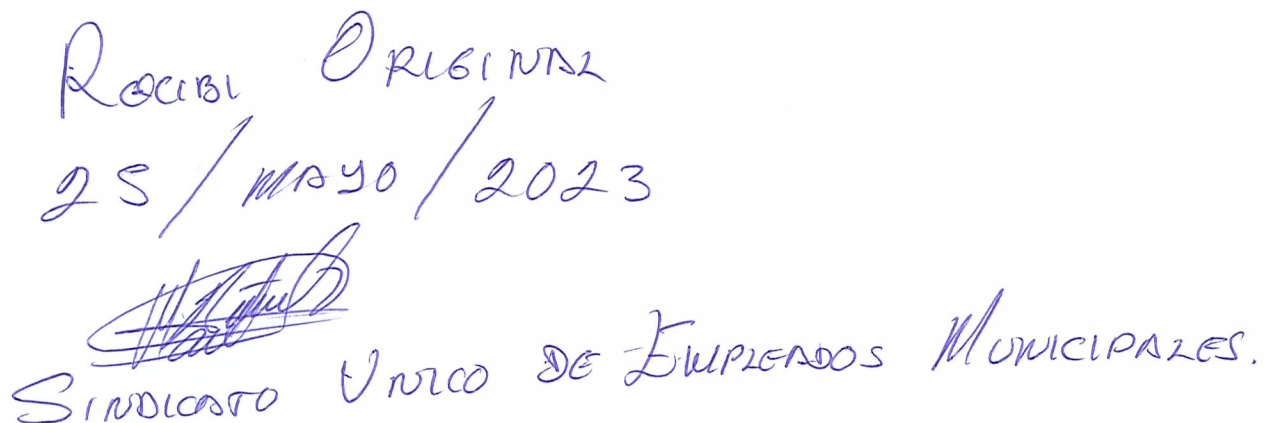 RECIBI ORIGINAL
25/MAYO/2023
SINDICATO UNICO DE EMPLEADOS MUNICIPALES.